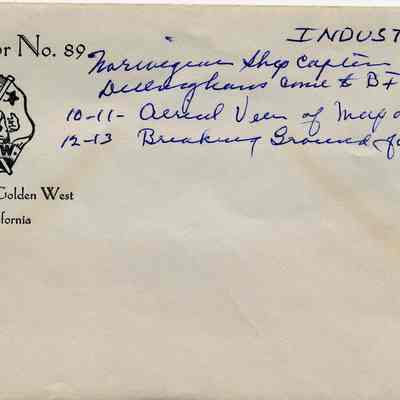 INDUST
or No. 89
Norwegian Ship Captain
Dillinghams come to B F
10-11- Aerial View of Map o
12-13 Breaking Ground fo
W
Golden West
ifornia